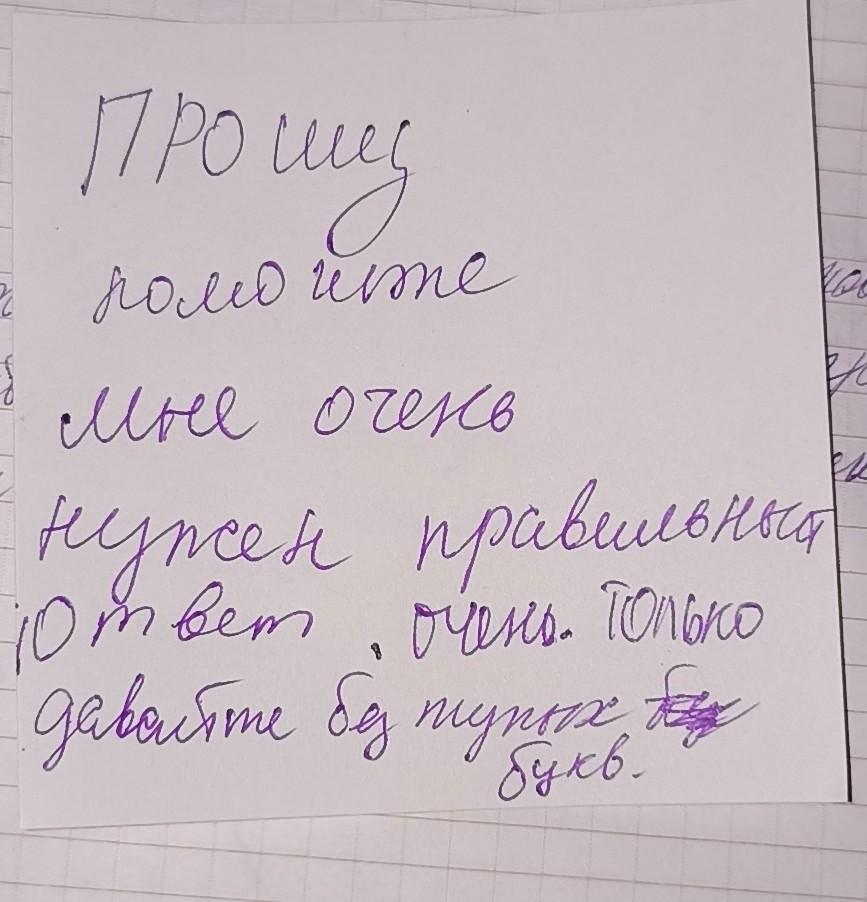 Прошу
помогите
мне очень
нужен правильный
Ответ. очень. только
давайте без тупых
букв.